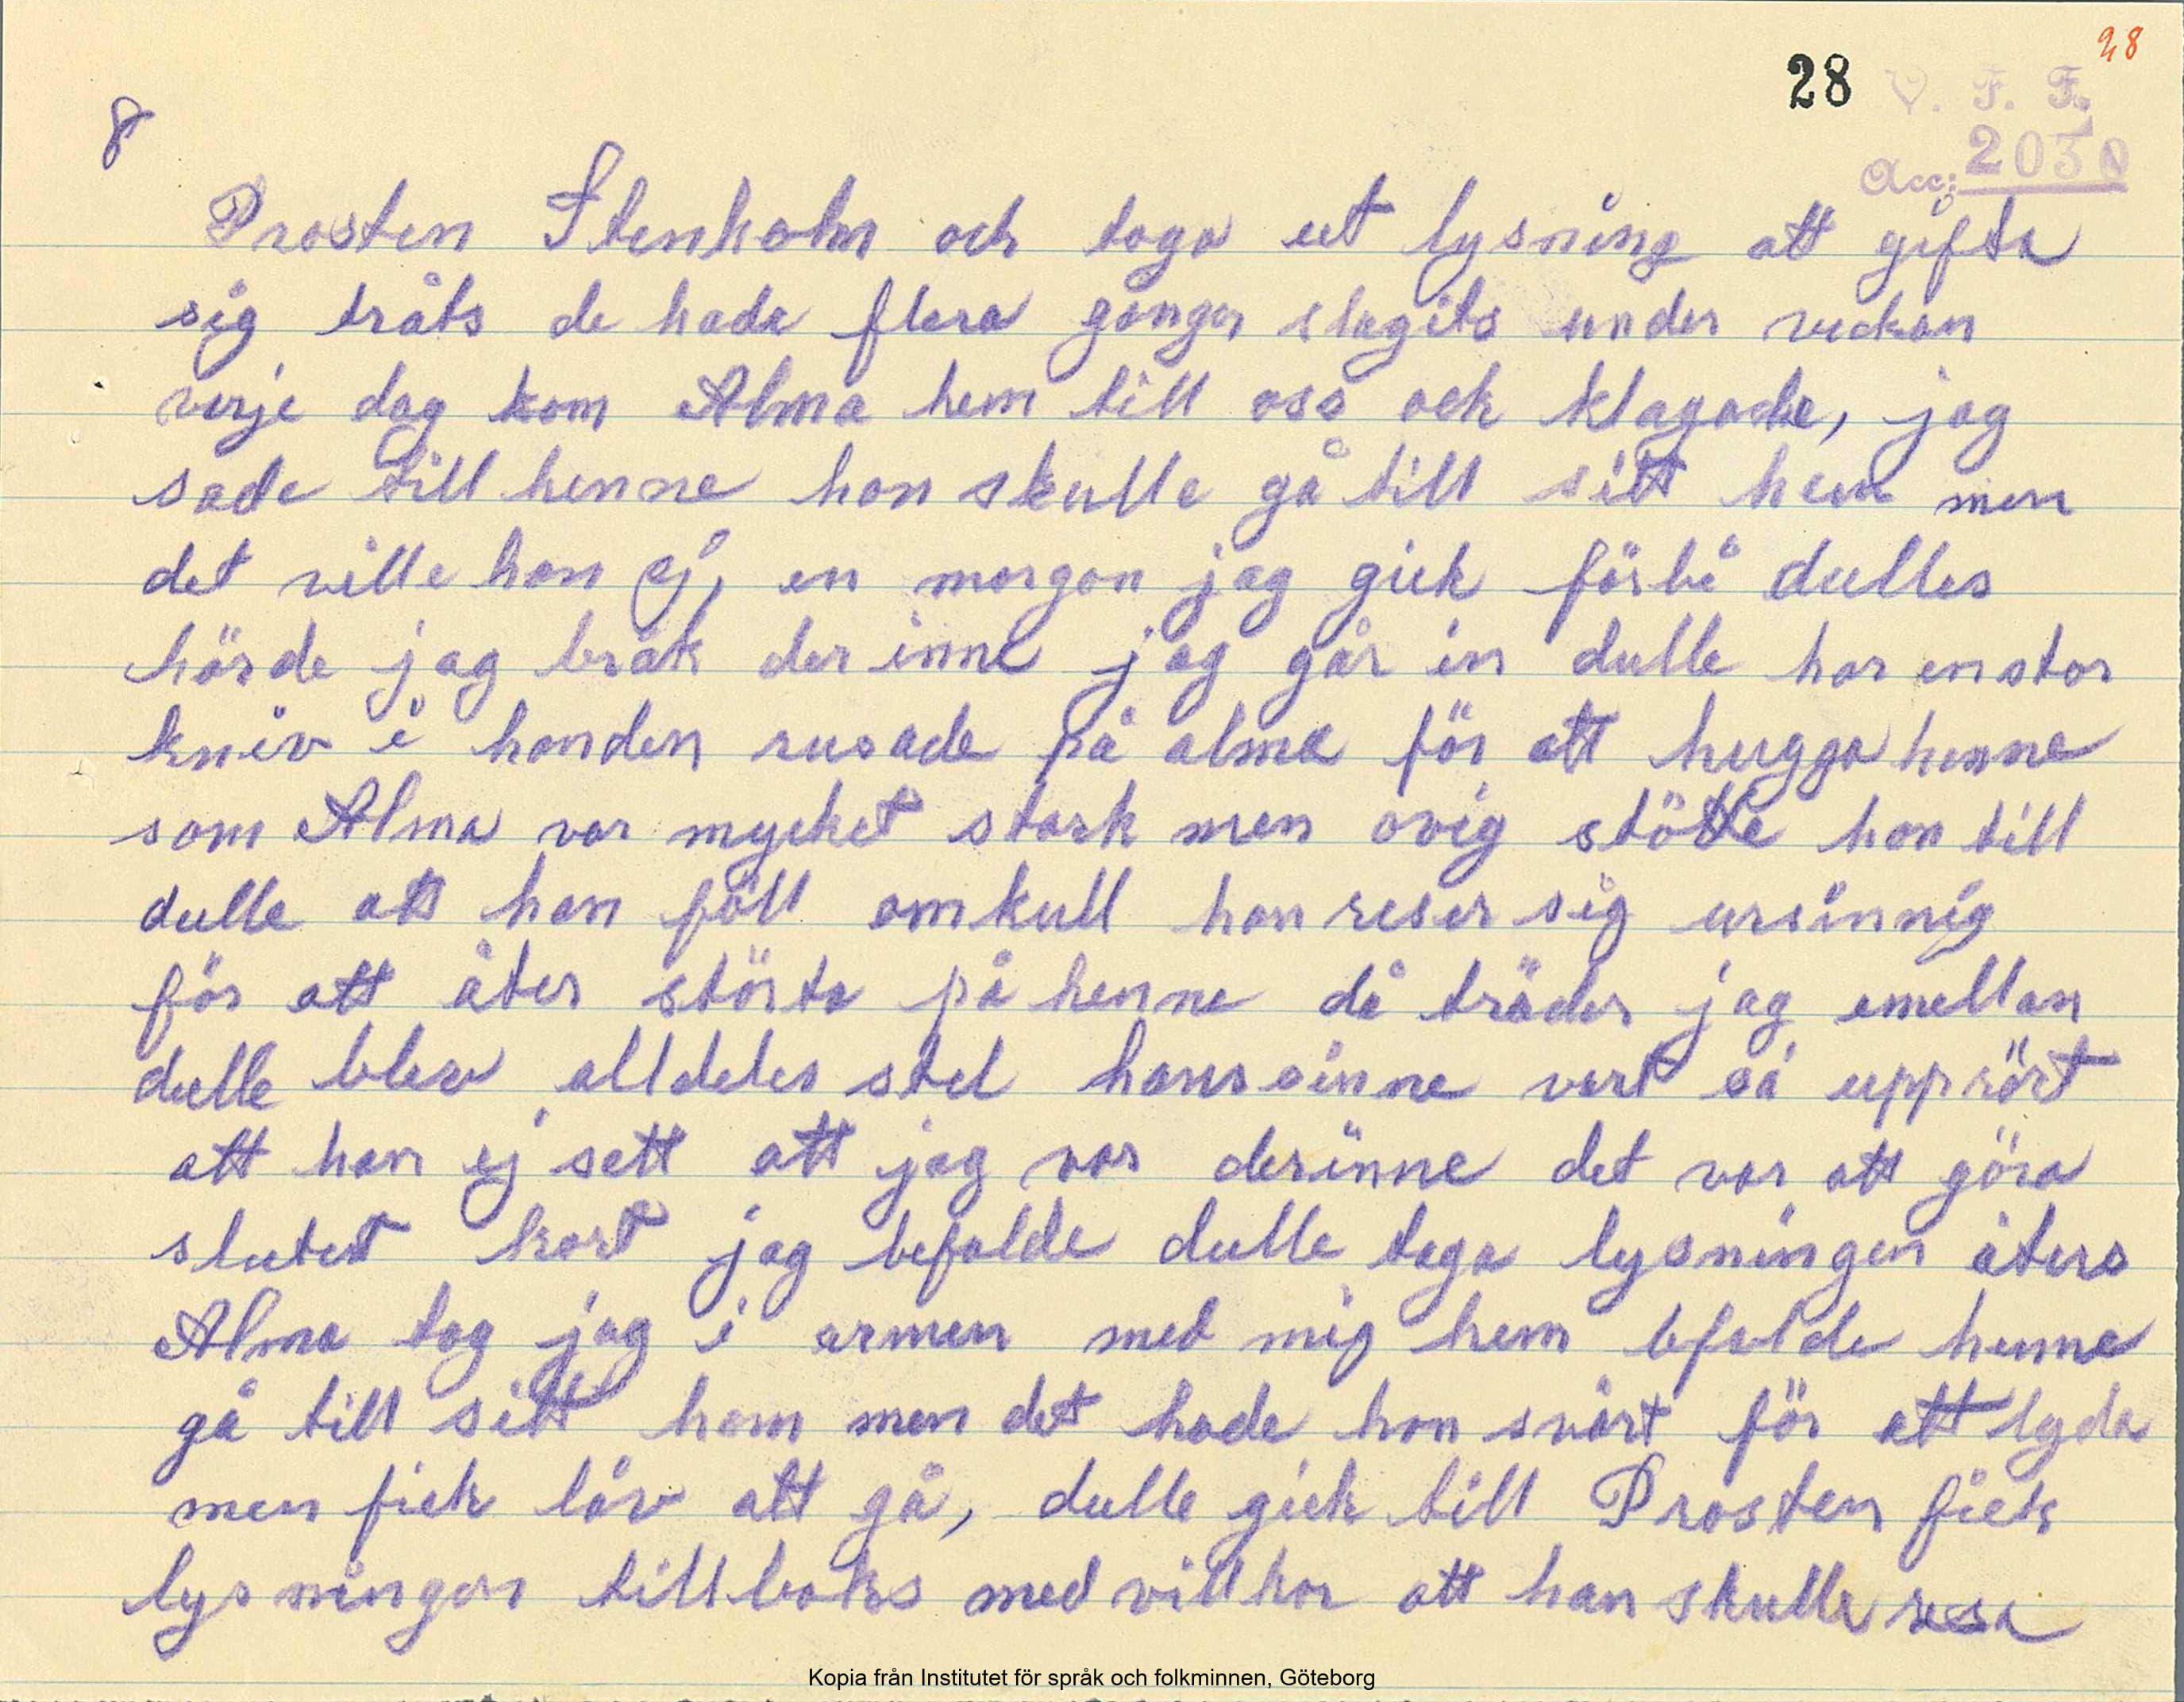 28
28
V. F. F.
Acc: 2030
8
Prosten Stenholm och toga ut lysning att gifta
sig tråts de hade flera gånger slagits under veckan
verje dag kom Alma hem till oss ock klagade, jag
sade till henne hon skulle gå till sitt hem men
det ville hon ej, en morgon jag gick förbi dulles
hörde jag bråk der inne jag går in dulle har en stor
kniv i handen rusade på alma för att hugga henne
som Alma var mycket stark men ovig stötte hon till
dulle att han föll omkull han reser sig ursinnig
för att åter störta på henne då träder jag emellan
dulle blev alldeles stel hans sinne vart så upprört
att han ej sett att jag var derinne det var att göra
slutet kort jag befalde dulle taga lysningen åters
Alma tog jag i armen med mig hem befalde henne
gå till sitt hem men det hade hon svårt för att lyda
men fick låv att gå, dulle gick till Prosten fick
lysningen tillbaks med villkor att han skulle resa
Kopia från Institutet för språk och folkminnen, Göteborg